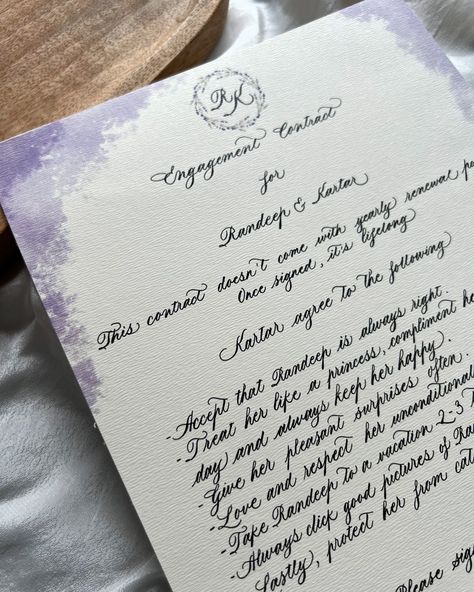 RK
Engagement Contract
for
Randeep & Kartar
This contract doesn't come with yearly renewal
Once signed, it's lifelong
Kartar agree to the following
-Accept that Randeep is always right.
-Treat her like a princess, compliment
day and always keep her happy.
-Give her pleasant surprises often.
-Love and respect her
-Take Randeep to a vacation 2-3
-Always click good pictures of
Lastly, protect her from
Please